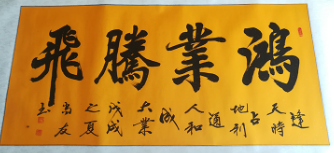 鴻業騰飛
逢天時
占地利
通人和
成大業
戊戌之夏